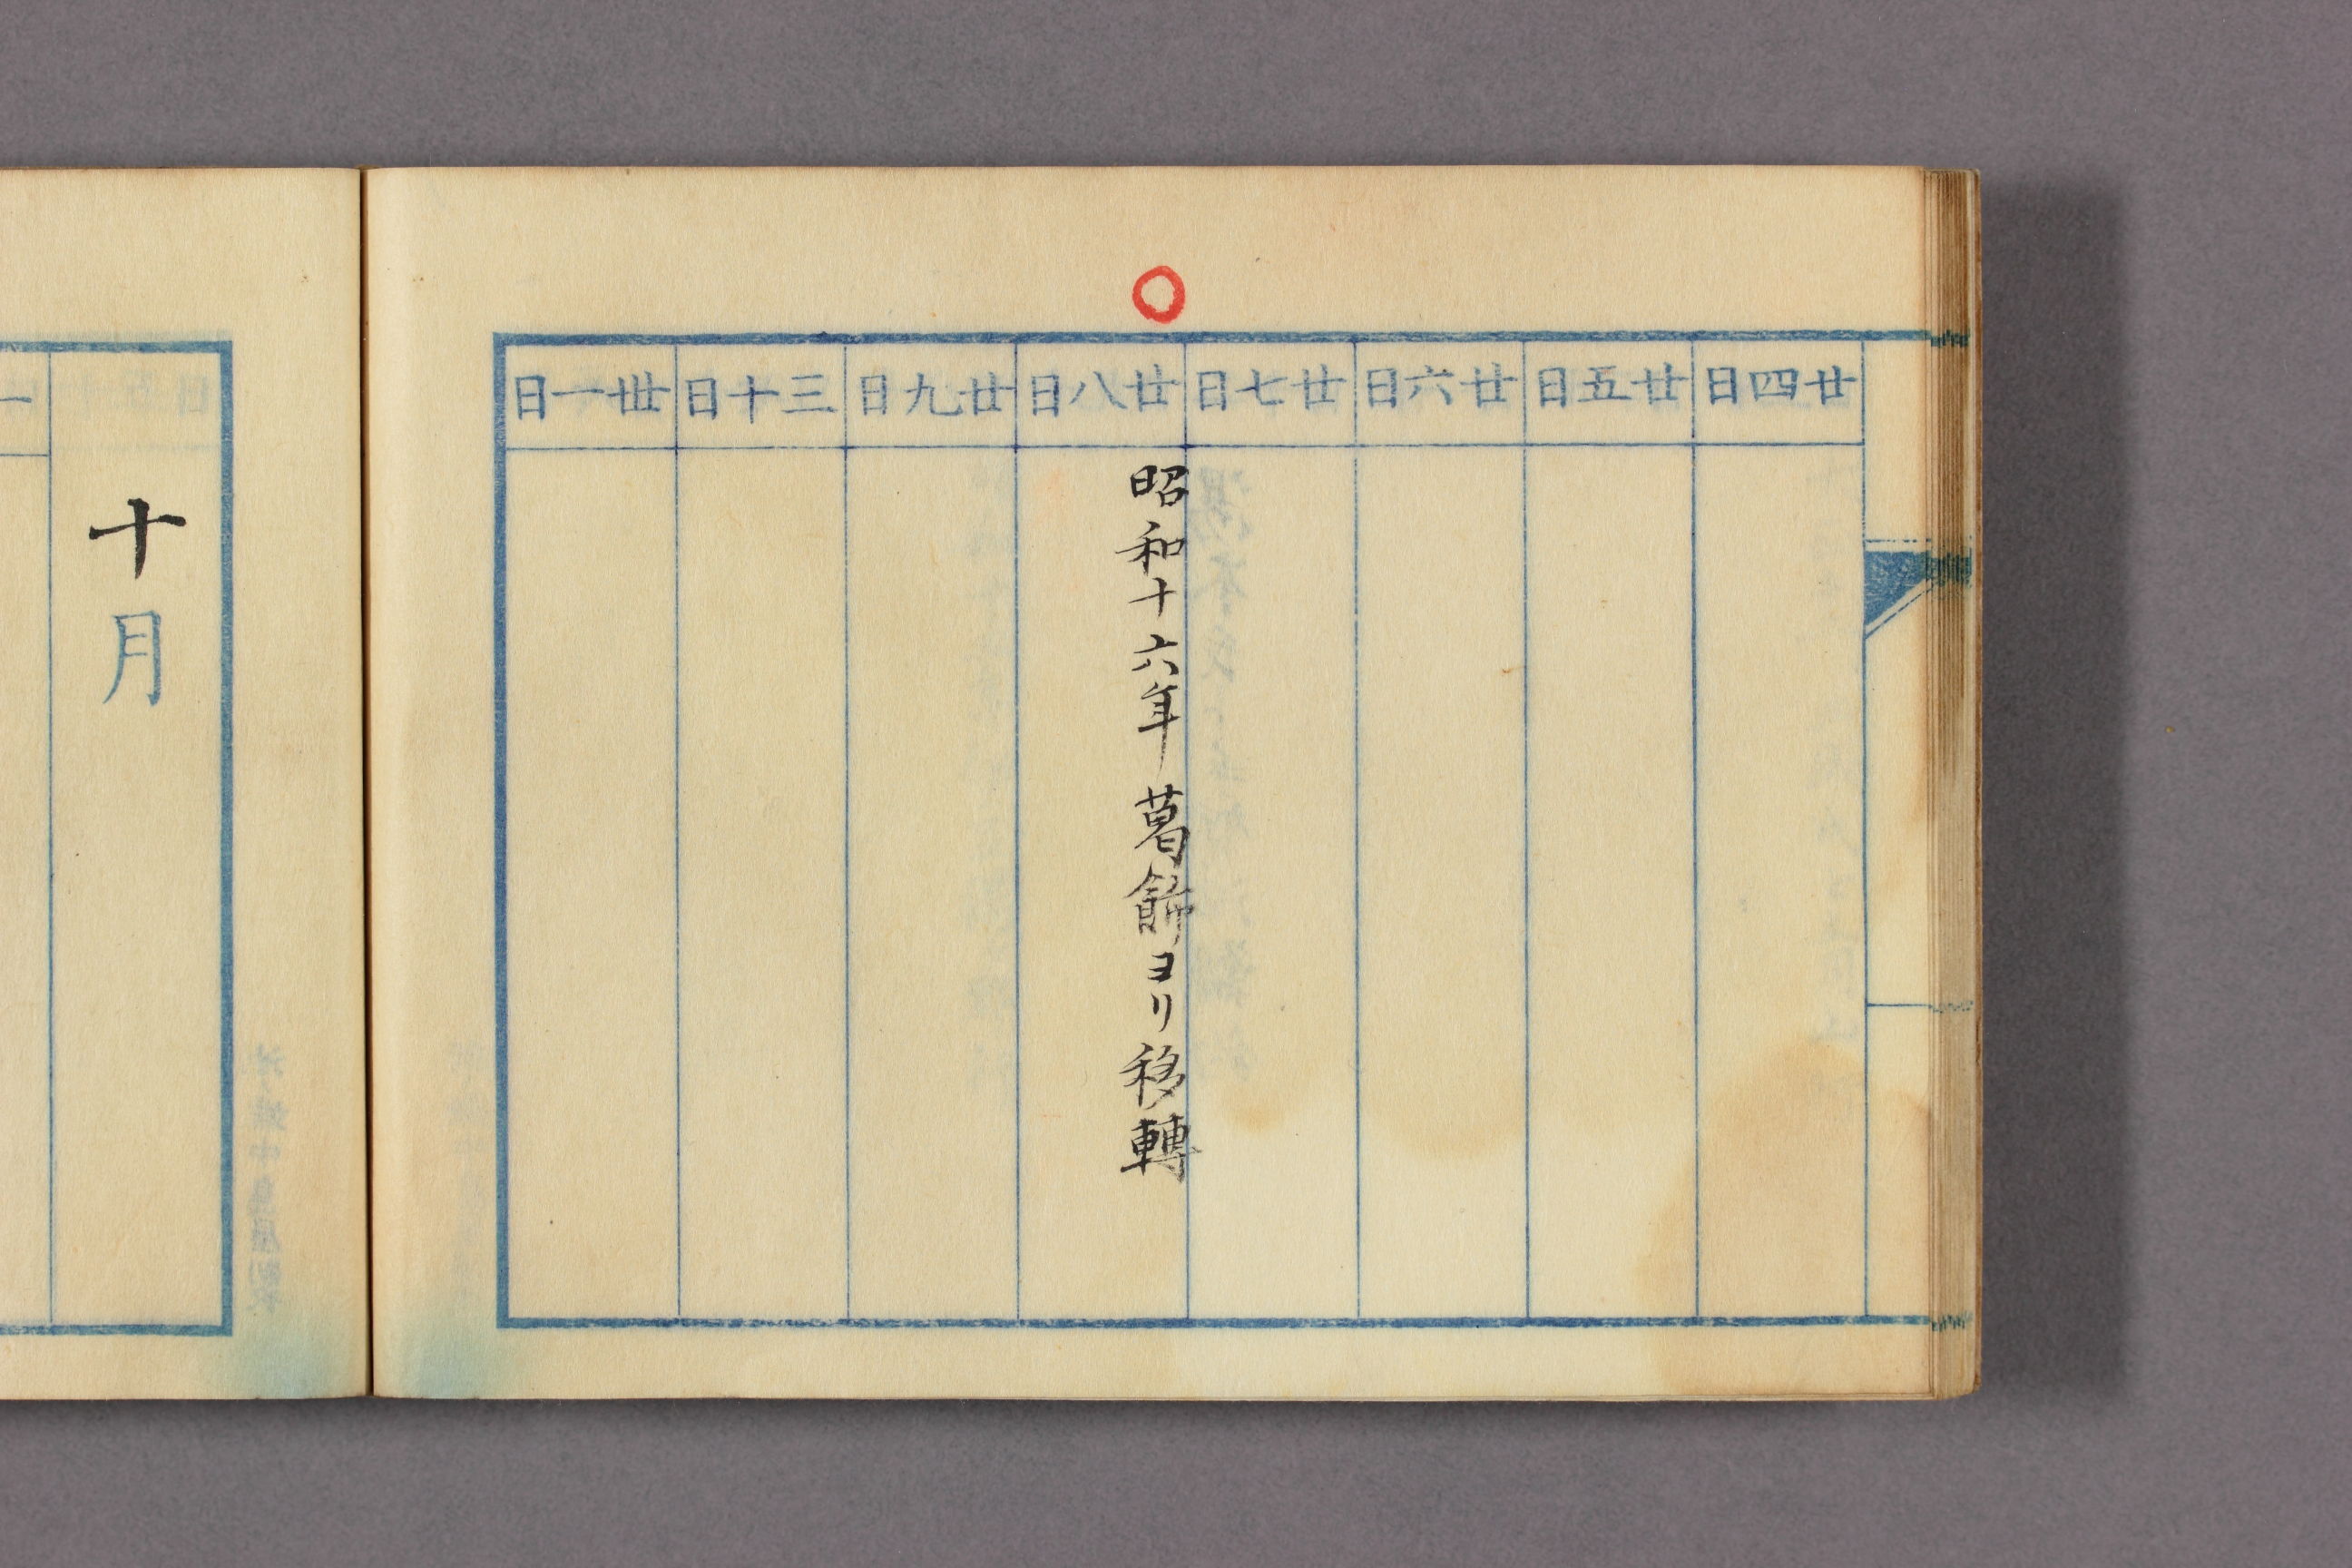 廿四日
廿五日
廿六日
廿七日
廿八日
昭和十六年葛飾ヨリ移轉
廿九日
三十日
丗一日
十月